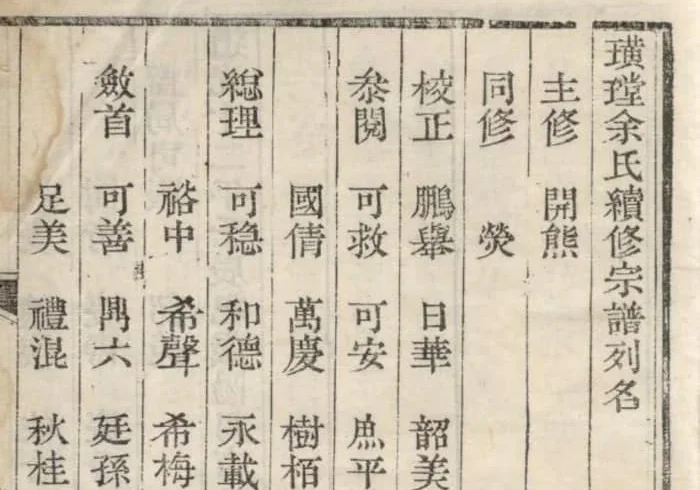 璜瑝余氏續修宗譜列名
主修 開熊
同修 熒
校正 鵬舉 日華 韶美
叅閱 可救 可安 𢊁平
國倩 萬慶 樹栢
總理 可稳 和德 永載
裕中 希聲 希梅
斂首 可善 鼎六 廷孫
足美 禮混 秋桂